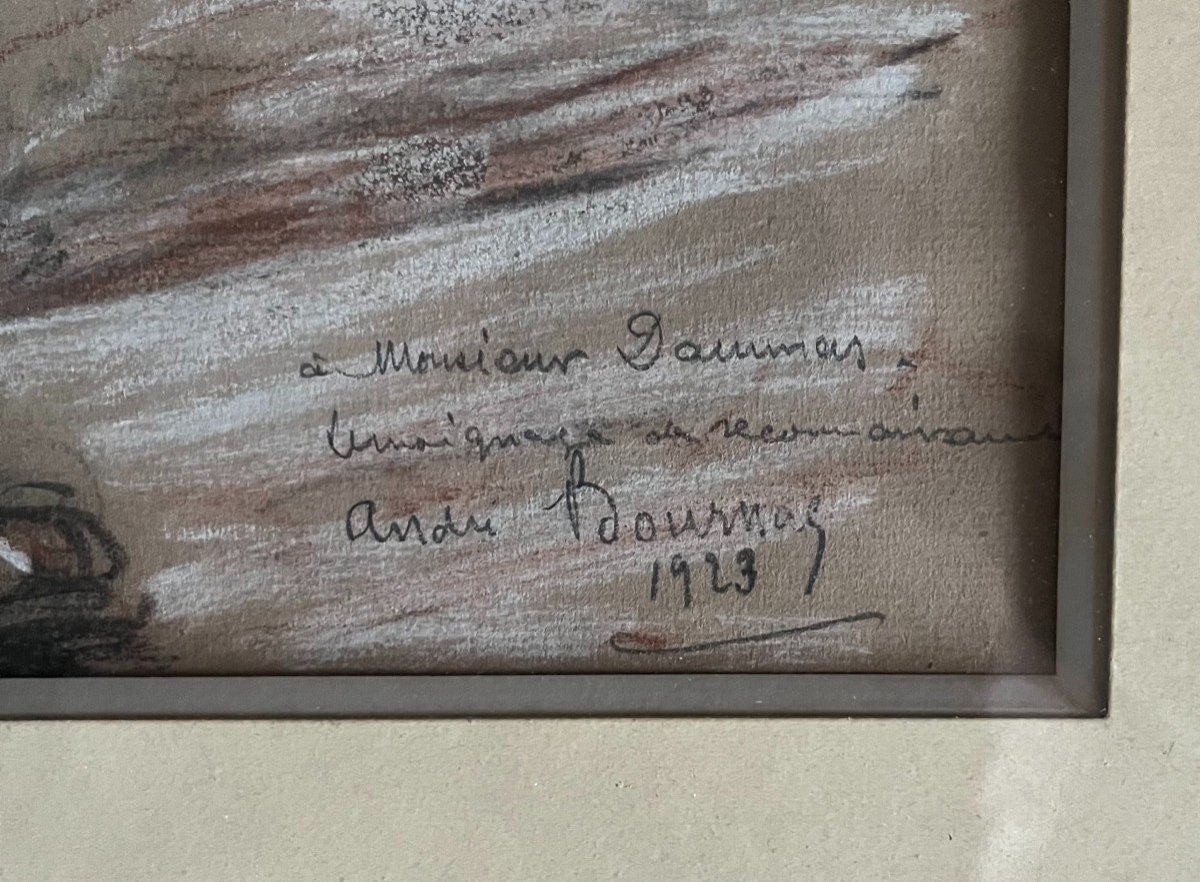 à Monsieur Daumas.
temoignage de reconnaissance
André Bournac
1923